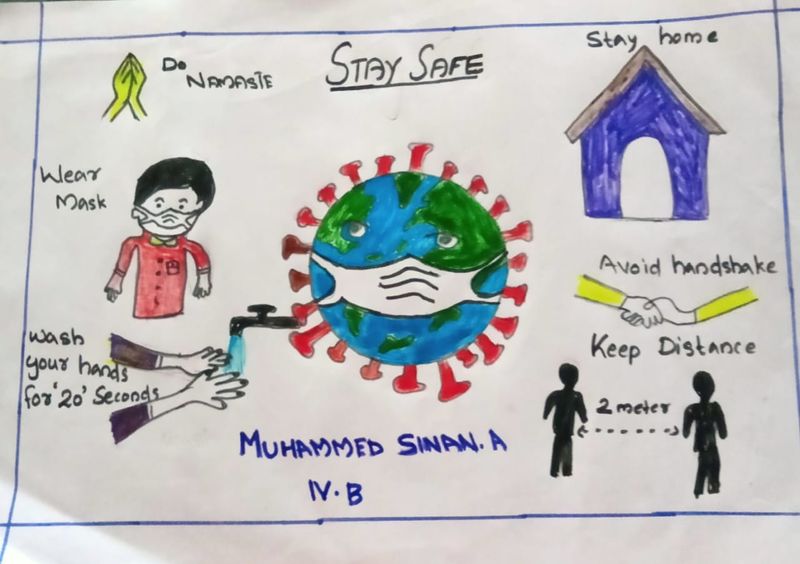 STAY SAFE
Do
NAMASTE
Stay home
Wear
Mask
Avoid handshake
Wash
your hands
for '20' Seconds
Keep Distance
2 meter
MUHAMMED SINAN.A
IV.B